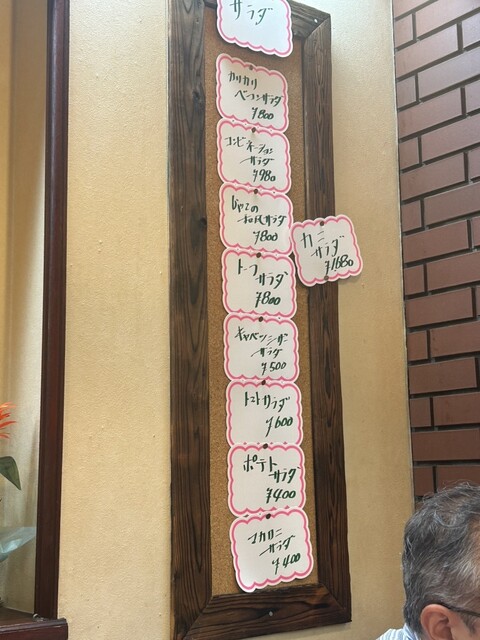 サラダ
カリカリ
ベーコンサラダ
¥800
コンビネーション
サラダ
¥980
じゃこの
和風サラダ
¥800
カニ
サラダ
¥1680
トーフ
サラダ
¥800
キャベツ
サラダ
¥500
トマトサラダ
¥600
ポテト
サラダ
¥400
マカロニ
サラダ
¥400